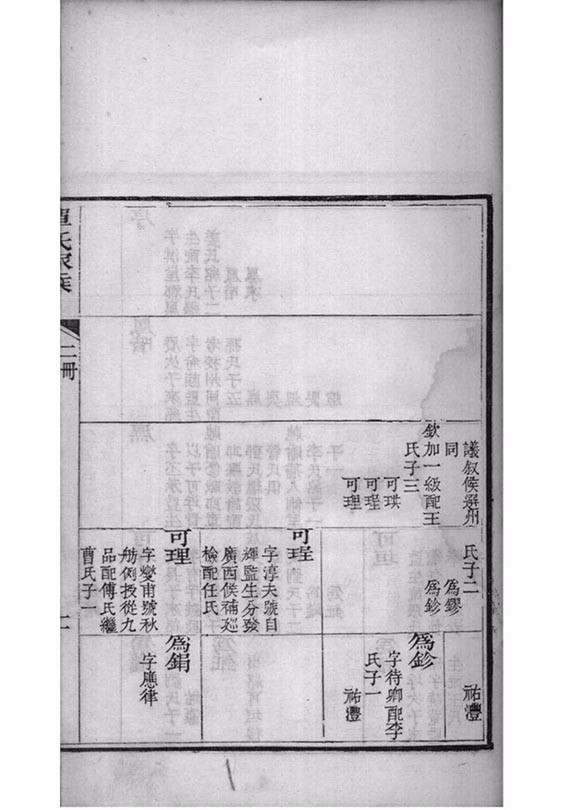 議敘侯選州
同
欽加一級配王
氏子三
可琪
可珵
可理
氏子二
爲鏐
爲鉁
可珵
字淳夫號自
輝監生分發
廣西候補巡
檢配任氏
可理
字燮甫號秋
舫例授從九
品配傅氏繼
曹氏子一
祐灃
爲鉁
字待卿配李
氏子一
祐灃
爲鋗
字應律
單氏家乘
二冊